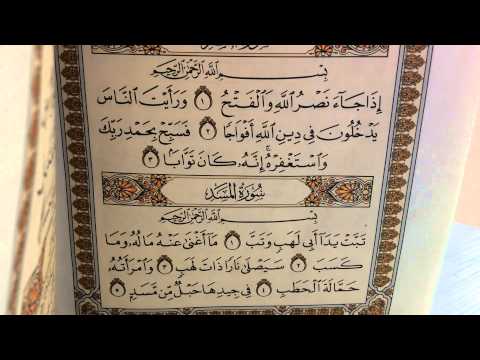 بِسْمِ اللَّهِ الرَّحْمَٰنِ الرَّحِيمِ
إِذَا جَاءَ نَصْرُ اللَّهِ وَالْفَتْحُ ١ وَرَأَيْتَ النَّاسَ
يَدْخُلُونَ فِي دِينِ اللَّهِ أَفْوَاجًا ٢ فَسَبِّحْ بِحَمْدِ رَبِّكَ
وَاسْتَغْفِرْهُ ۚ إِنَّهُ كَانَ تَوَّابًا ٣
سُورَةُ المَسَدِ
بِسْمِ اللَّهِ الرَّحْمَٰنِ الرَّحِيمِ
تَبَّتْ يَدَا أَبِي لَهَبٍ وَتَبَّ ١ مَا أَغْنَىٰ عَنْهُ مَالُهُ وَمَا
كَسَبَ ٢ سَيَصْلَىٰ نَارًا ذَاتَ لَهَبٍ ٣ وَامْرَأَتُهُ
حَمَّالَةَ الْحَطَبِ ٤ فِي جِيدِهَا حَبْلٌ مِّن مَّسَدٍ ٥